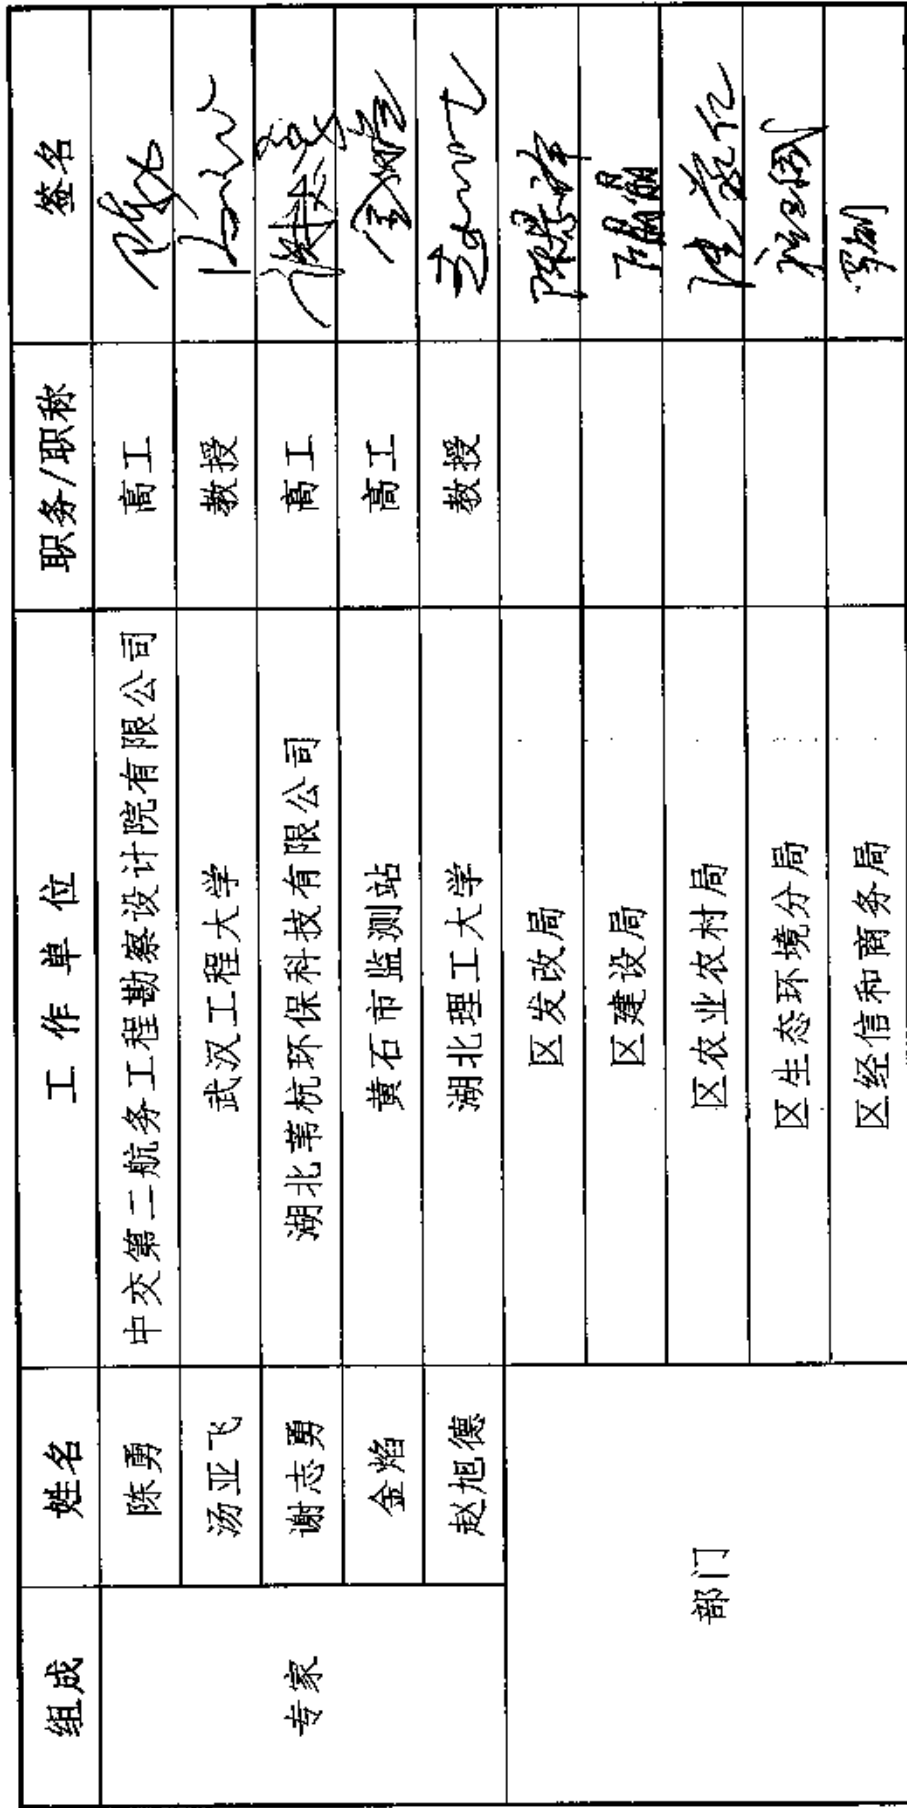 组成 姓名 工作单位 职务/职称 签名
专家 陈勇 中交第二航务工程勘察设计院有限公司 高工
汤亚飞 武汉工程大学 教授
谢志勇 湖北苇杭环保科技有限公司 高工
金焰 黄石市监测站 高工 金焰
赵旭德 湖北理工大学 教授
部门 区发改局
区建设局
区农业农村局
区生态环境分局
区经信和商务局